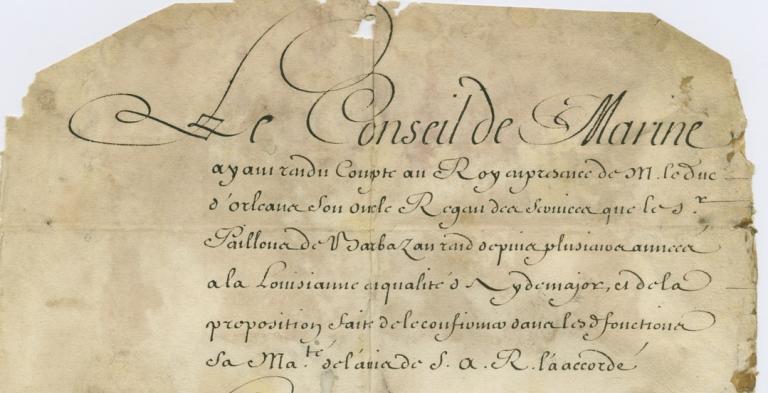 Le Conseil de Marine
ayant rendu Compte au Roy en presence de M. le duc
d'orleans son oncle Regent des services que le S.r
Pailloux de Barbazan rend depuis plusieurs années
a la Louisianne en qualité d'Aydemajor, et de la
proposition faite de le confirmer dans lesd. fonctions
Sa Ma.té de l'avis de S. A. R. l'a accordé